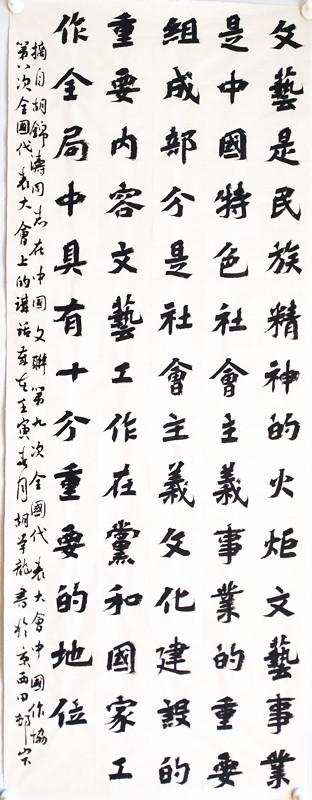 文藝是民族精神的火炬文藝事業
是中國特色社會主義事業的重要
組成部分是社會主義文化建設的
重要内容文藝工作在黨和國家工
作全局中具有十分重要的地位
摘自胡錦濤同志在中國文聯第九次全國代表大會中國作協
第八次全國代表大會上的講話歲在壬寅春月胡龍書於京西田村